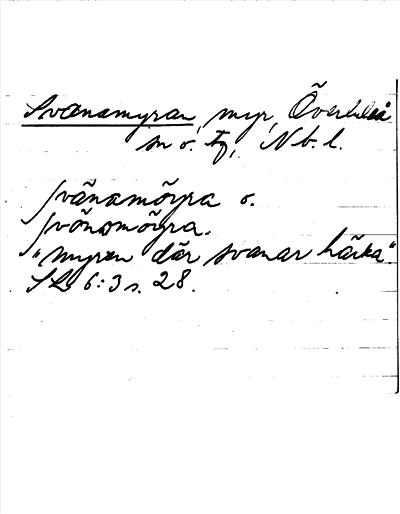 Svanamyran, myr, Överluleå
sn o. tg, Nb. l.
ʃvãnamõyra o.
ʃvõnamõyra.
"myren där svanar häcka".
SL 6:3 s. 28.